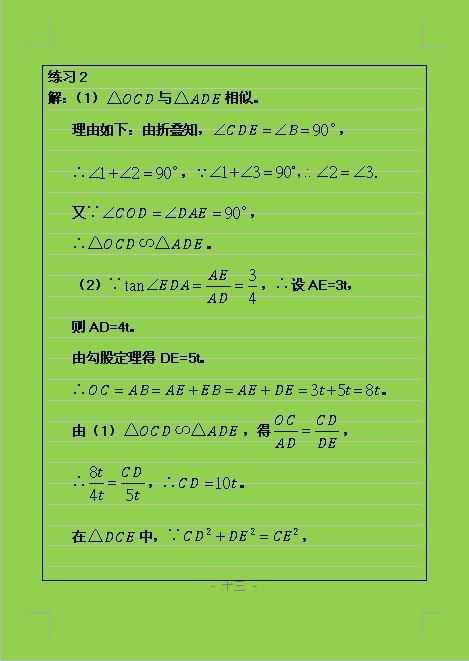 练习2
解：（1）△OCD与△ADE相似。
理由如下：由折叠知，∠CDE=∠B=90°，
∴∠1+∠2=90°，∵∠1+∠3=90°，∴∠2=∠3.
又∵∠COD=∠DAE=90°，
∴△OCD∽△ADE。
（2）∵tan∠EDA=AE/AD=3/4，∴设AE=3t，
则AD=4t。
由勾股定理得DE=5t。
∴OC=AB=AE+EB=AE+DE=3t+5t=8t。
由（1）△OCD∽△ADE，得OC/AD=CD/DE，
∴8t/4t=CD/5t，∴CD=10t。
在△DCE中，∵CD²+DE²=CE²，
- 十三 -